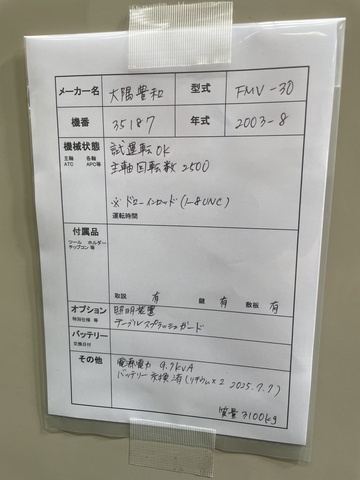 メーカー名 大隈豊和 型式 FMV-30
機番 35187 年式 2003-8
機械状態 試運転OK
主軸 各軸 主軸回転数 2500
ATC APC等
※ドローインロッド(1-8UNC)
運転時間
付属品
ツール ホルダー
チップコン 等
取説 有 鍵 有 敷板 有
オプション 照明装置
特別仕様 等 テーブルスプラッシュガード
バッテリー
交換日付
その他 電源電力 9.7kVA
バッテリー交換済(リチウム×2 2025.7.7)
質量 3100kg